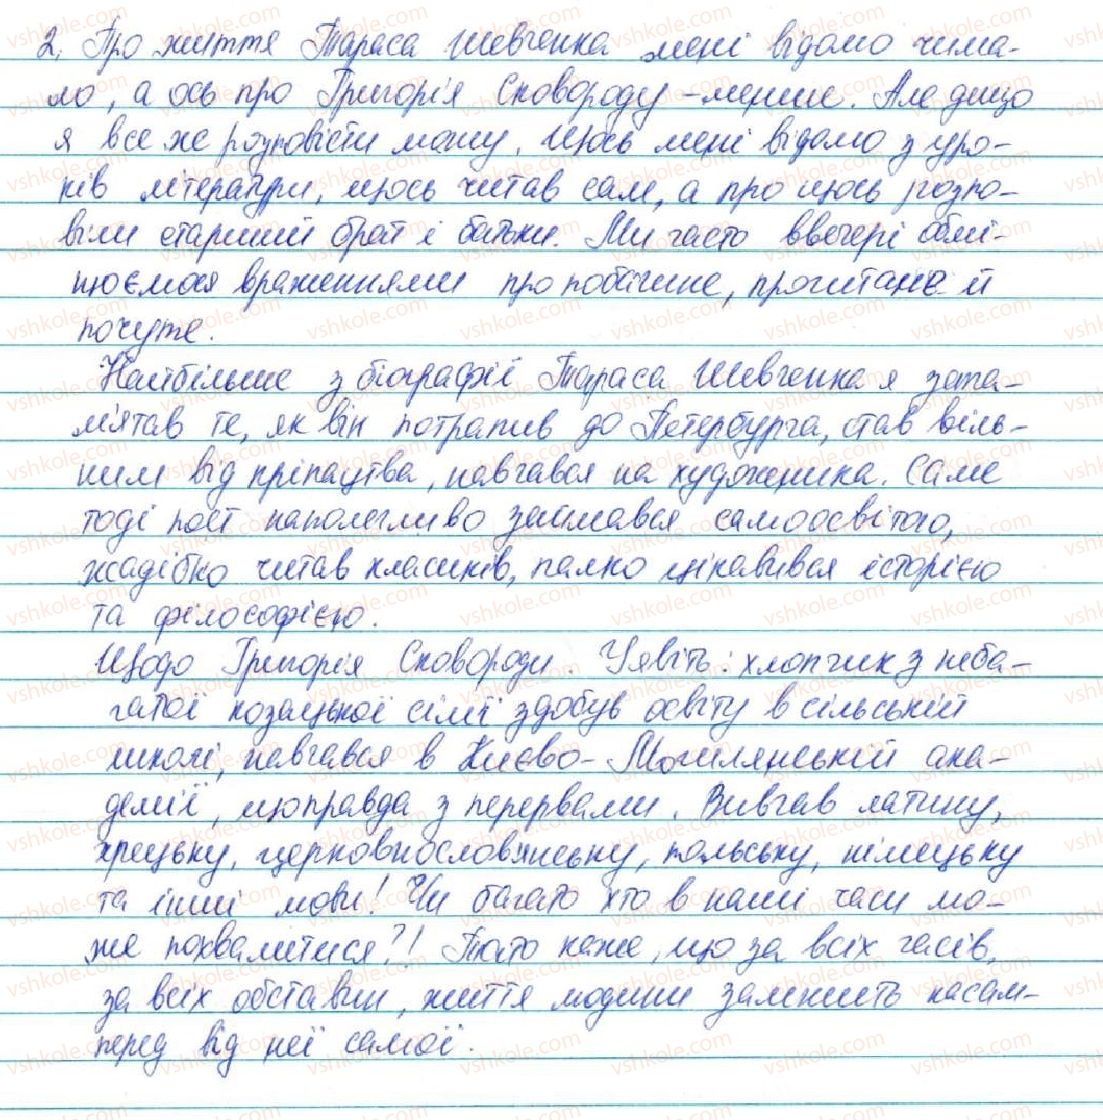 2. Про життя Тараса Шевченка мені відомо чима-
ло, а ось про Григорія Сковороду - менше. Але дещо
я все же розповісти можу. Щось мені відомо з уро-
ків літератури, щось читав сам, а про щось розпо-
віли старший брат і батьки. Ми часто ввечері обмі-
нюємося враженнями про побачене, прочитане й
почуте.
Найбільше з біографії Тараса Шевченка я запа-
м'ятав те, як він потрапив до Петербурга, став віль-
ним від кріпацтва, навчався на художника. Саме
тоді поет наполегливо займався самоосвітою,
жадібно читав класиків, палко цікавився історією
та філософією.
Щодо Григорія Сковороди. Уявіть: хлопчик з неба-
гатої козацької сім'ї здобув освіту в сільській
школі, навчався в Києво-Могилянській ака-
демії, щоправда з перервами. Вивчав латину,
грецьку, церковнослов'янську, польську, німецьку
та інші мови! Чи багато хто в наші часи мо-
же похвалитися?! Тато каже, що за всіх часів,
за всіх обставин, життя людини залежить насам-
перед від неї самої.
vshkole.com